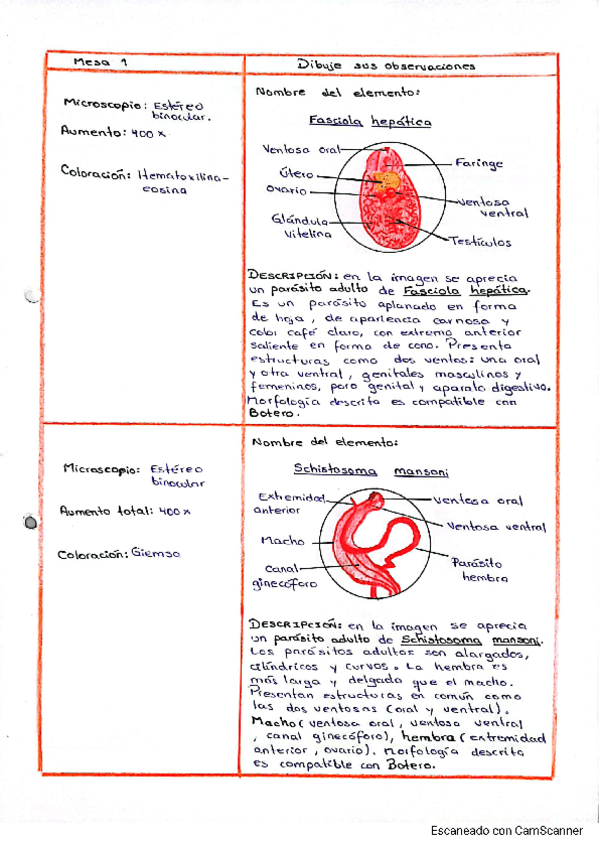 Mesa 1
Dibuje sus observaciones
Microscopio: Estéreo
binocular.
Aumento: 400 x
Coloración: Hematoxilina-
eosina
Nombre del elemento:
Fasciola hepática
Ventosa oral
Útero
Ovario
Glándula
vitelina
Faringe
Ventosa
ventral
Testículos
DESCRIPCIÓN: en la imagen se aprecia
un parásito adulto de Fasciola hepática.
Es un parásito aplanado en forma
de hoja, de apariencia carnosa y
color café claro, con extremo anterior
saliente en forma de cono. Presenta
estructuras como dos ventos: una oral
y otra ventral, genitales masculinos y
femeninos, poro genital y aparato digestivo.
Morfología descrita es compatible con
Botero.
Microscopio: Estéreo
binocular
Aumento total: 400 x
Coloración: Giemsa
Nombre del elemento:
Schistosoma mansoni
Extremidad
anterior
Macho
Canal
ginecóforo
Ventosa oral
Ventosa ventral
Parásito
hembra
DESCRIPCIÓN: en la imagen se aprecia
un parásito adulto de Schistosoma mansoni.
Los parásitos adultos son alargados,
cilíndricos y curvos. La hembra es
más larga y delgada que el macho.
Presentan estructuras en común como
las dos ventosas (oral y ventral).
Macho (ventosa oral, ventosa ventral
, canal ginecóforo), hembra (extremidad
anterior, ovario). Morfología descrita
es compatible con Botero.
Escaneado con CamScanner